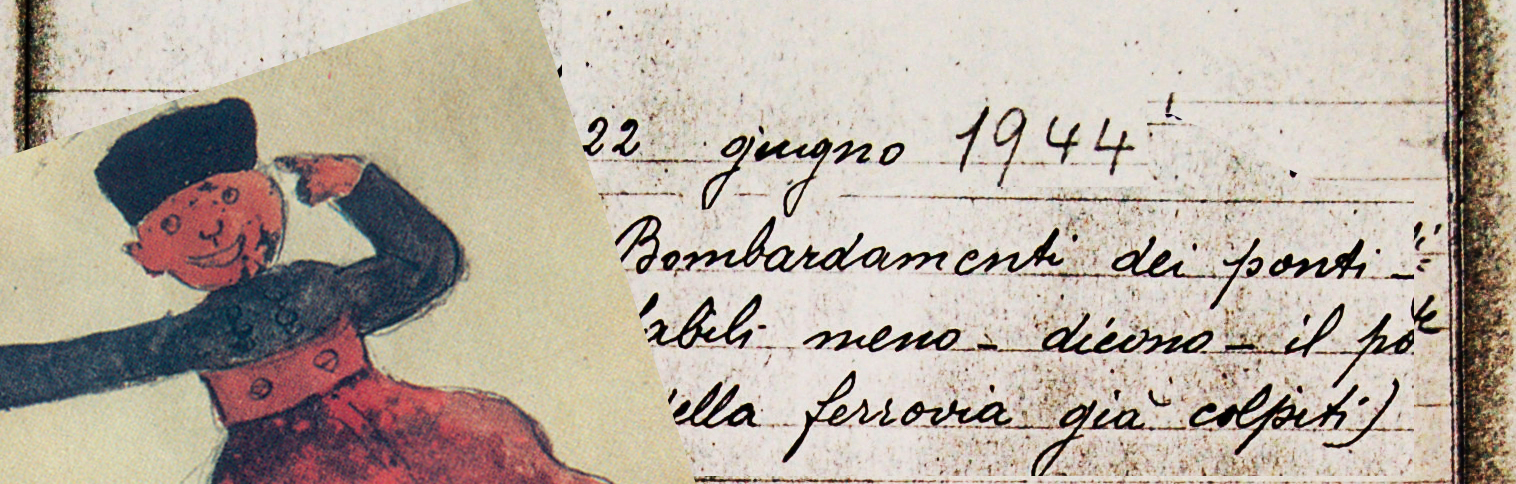 22 giugno 1944
Bombardamenti dei ponti
meno - dicono - il
ferrovia già colpiti)